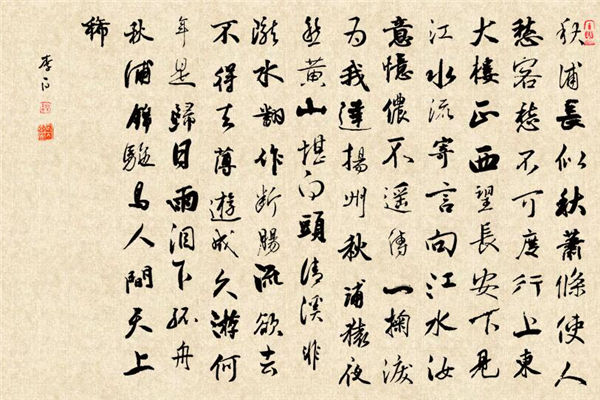 秋浦長似秋蕭條使人
愁客愁不可度行上東
大樓正西望長安下見
江水流寄言向江水汝
意憶儂不遙傳一掬淚
為我達揚州秋浦猿夜
愁黃山堪白頭清溪非
瀧水翻作斷腸流欲去
不得去薄遊成久游何
年是歸日雨淚下孤舟
秋浦錦駝鳥人間天上
稀
李白